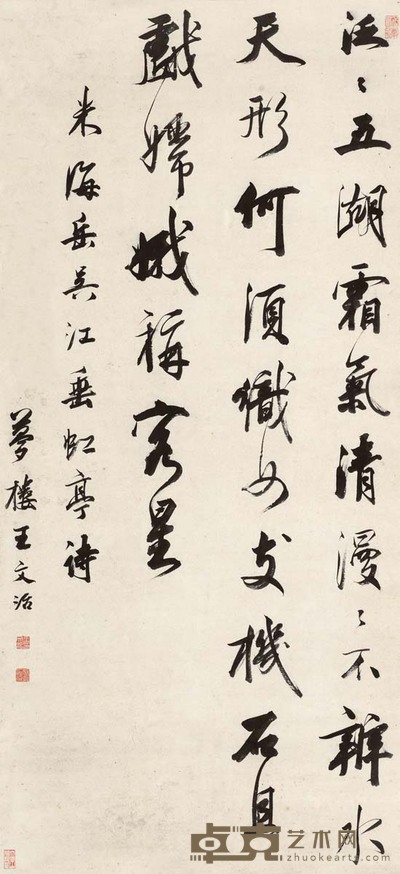 泛〻五湖霜氣清漫〻不辨水
天形何須織女支機石且
戲嫦娥稱客星
米海岳吳江垂虹亭詩
夢樓王文治
卓克艺术网
zhuokearts.com